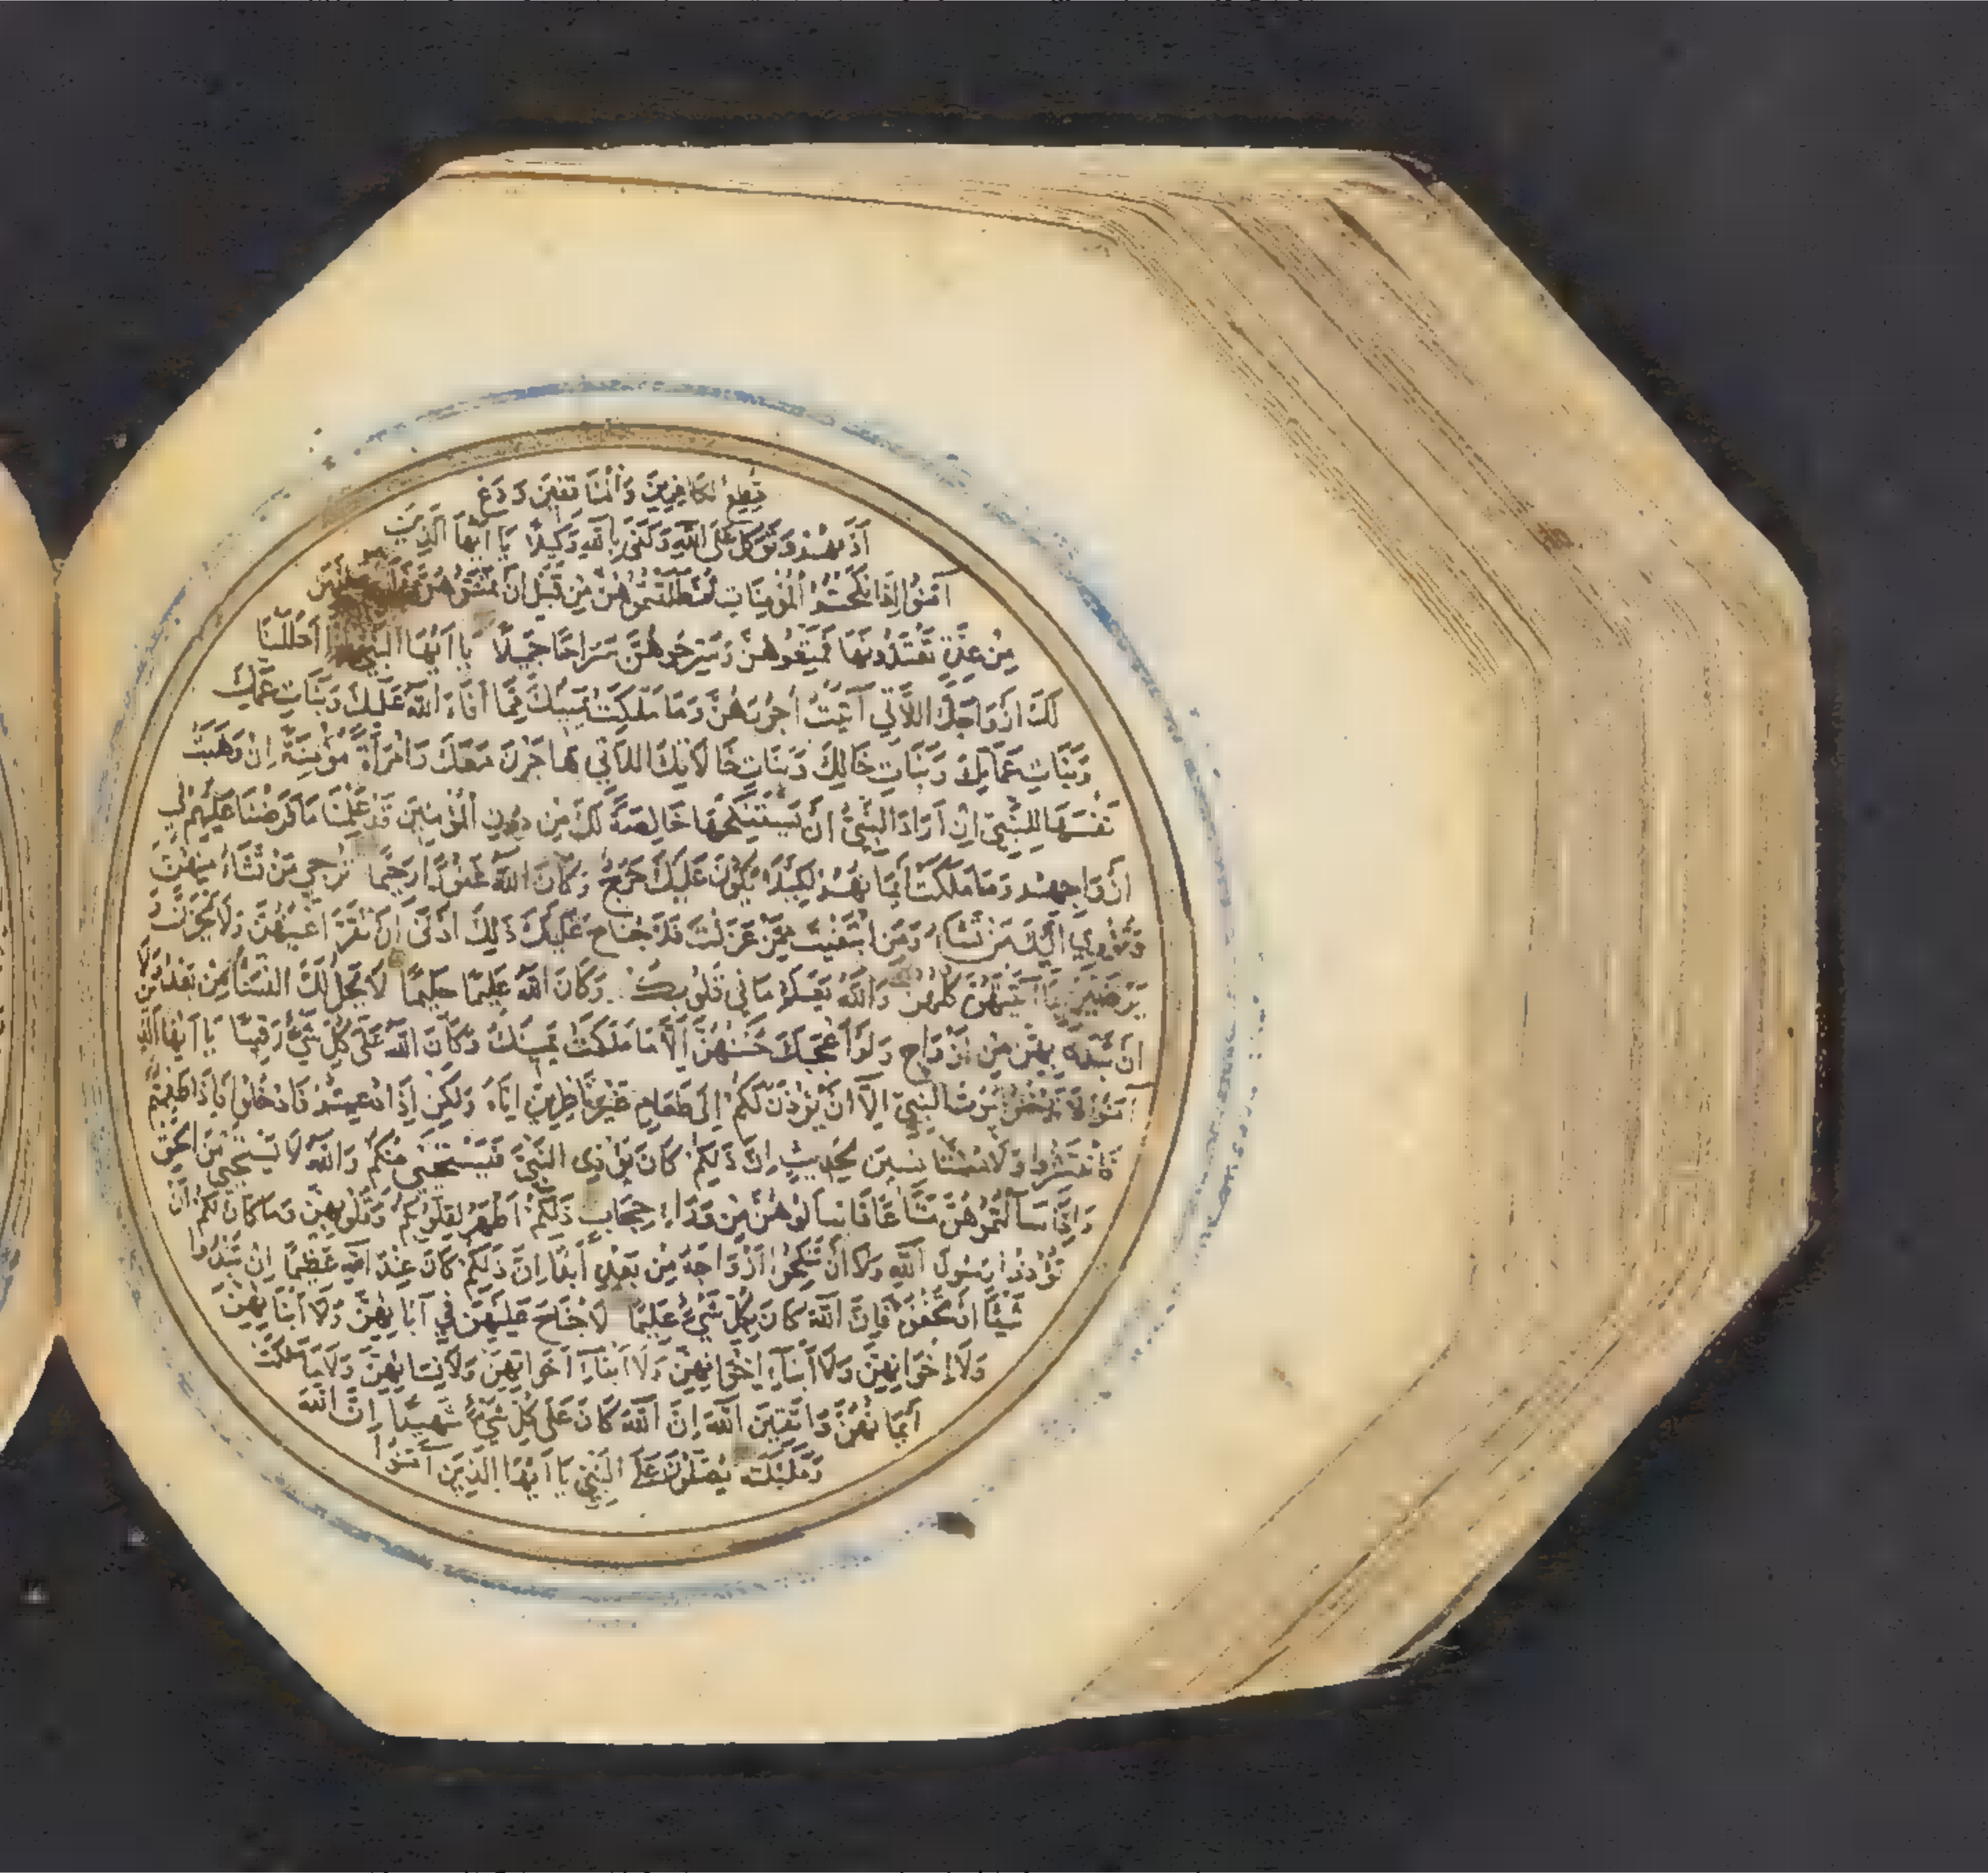 تطع الكافرين والمنافقين ودع
أذيهم وتوكل على الله وكفى بالله وكيلا يا أيها الذين
آمنوا إذا نكحتم المؤمنات ثم طلقتموهن من قبل أن تمسوهن
من عدة تعتدونها فمتعوهن وسرحوهن سراحا جميلا يا أيها النبي إنا أحللنا
لك أزواجك اللاتي آتيت أجورهن وما ملكت يمينك مما أفاء الله عليك وبنات عمك
وبنات عماتك وبنات خالك وبنات خالاتك اللاتي هاجرن معك وامرأة مؤمنة إن وهبت
نفسها للنبي إن أراد النبي أن يستنكحها خالصة لك من دون المؤمنين قد علمنا ما فرضنا عليهم في
أزواجهم وما ملكت أيمانهم لكيلا يكون عليك حرج وكان الله غفورا رحيما ترجي من تشاء منهن
وتؤوي إليك من تشاء ومن ابتغيت ممن عزلت فلا جناح عليك ذلك أدنى أن تقر أعينهن ولا يحزن و
يرضين بما آتيتهن كلهن والله يعلم ما في قلوبكم وكان الله عليما حليما لا يحل لك النساء من بعد ولا
أن تبدل بهن من أزواج ولو أعجبك حسنهن إلا ما ملكت يمينك وكان الله على كل شيء رقيبا يا أيها الذين
آمنوا لا تدخلوا بيوت النبي إلا أن يؤذن لكم إلى طعام غير ناظرين إناه ولكن إذا دعيتم فادخلوا فإذا طعمتم
فانتشروا ولا مستأنسين لحديث إن ذلكم كان يؤذي النبي فيستحيي منكم والله لا يستحيي من الحق
وإذا سألتموهن متاعا فاسألوهن من وراء حجاب ذلكم أطهر لقلوبكم وقلوبهن وما كان لكم أن
تؤذوا رسول الله ولا أن تنكحوا أزواجه من بعده أبدا إن ذلكم كان عند الله عظيما إن تبدوا
شيئا أو تخفوه فإن الله كان بكل شيء عليما لا جناح عليهن في آبائهن ولا أبنائهن
ولا إخوانهن ولا أبناء إخوانهن ولا أبناء أخواتهن ولا نسائهن ولا ما ملكت
أيمانهن واتقين الله إن الله كان على كل شيء شهيدا إن الله
وملئكته يصلون على النبي يا أيها الذين آمنوا